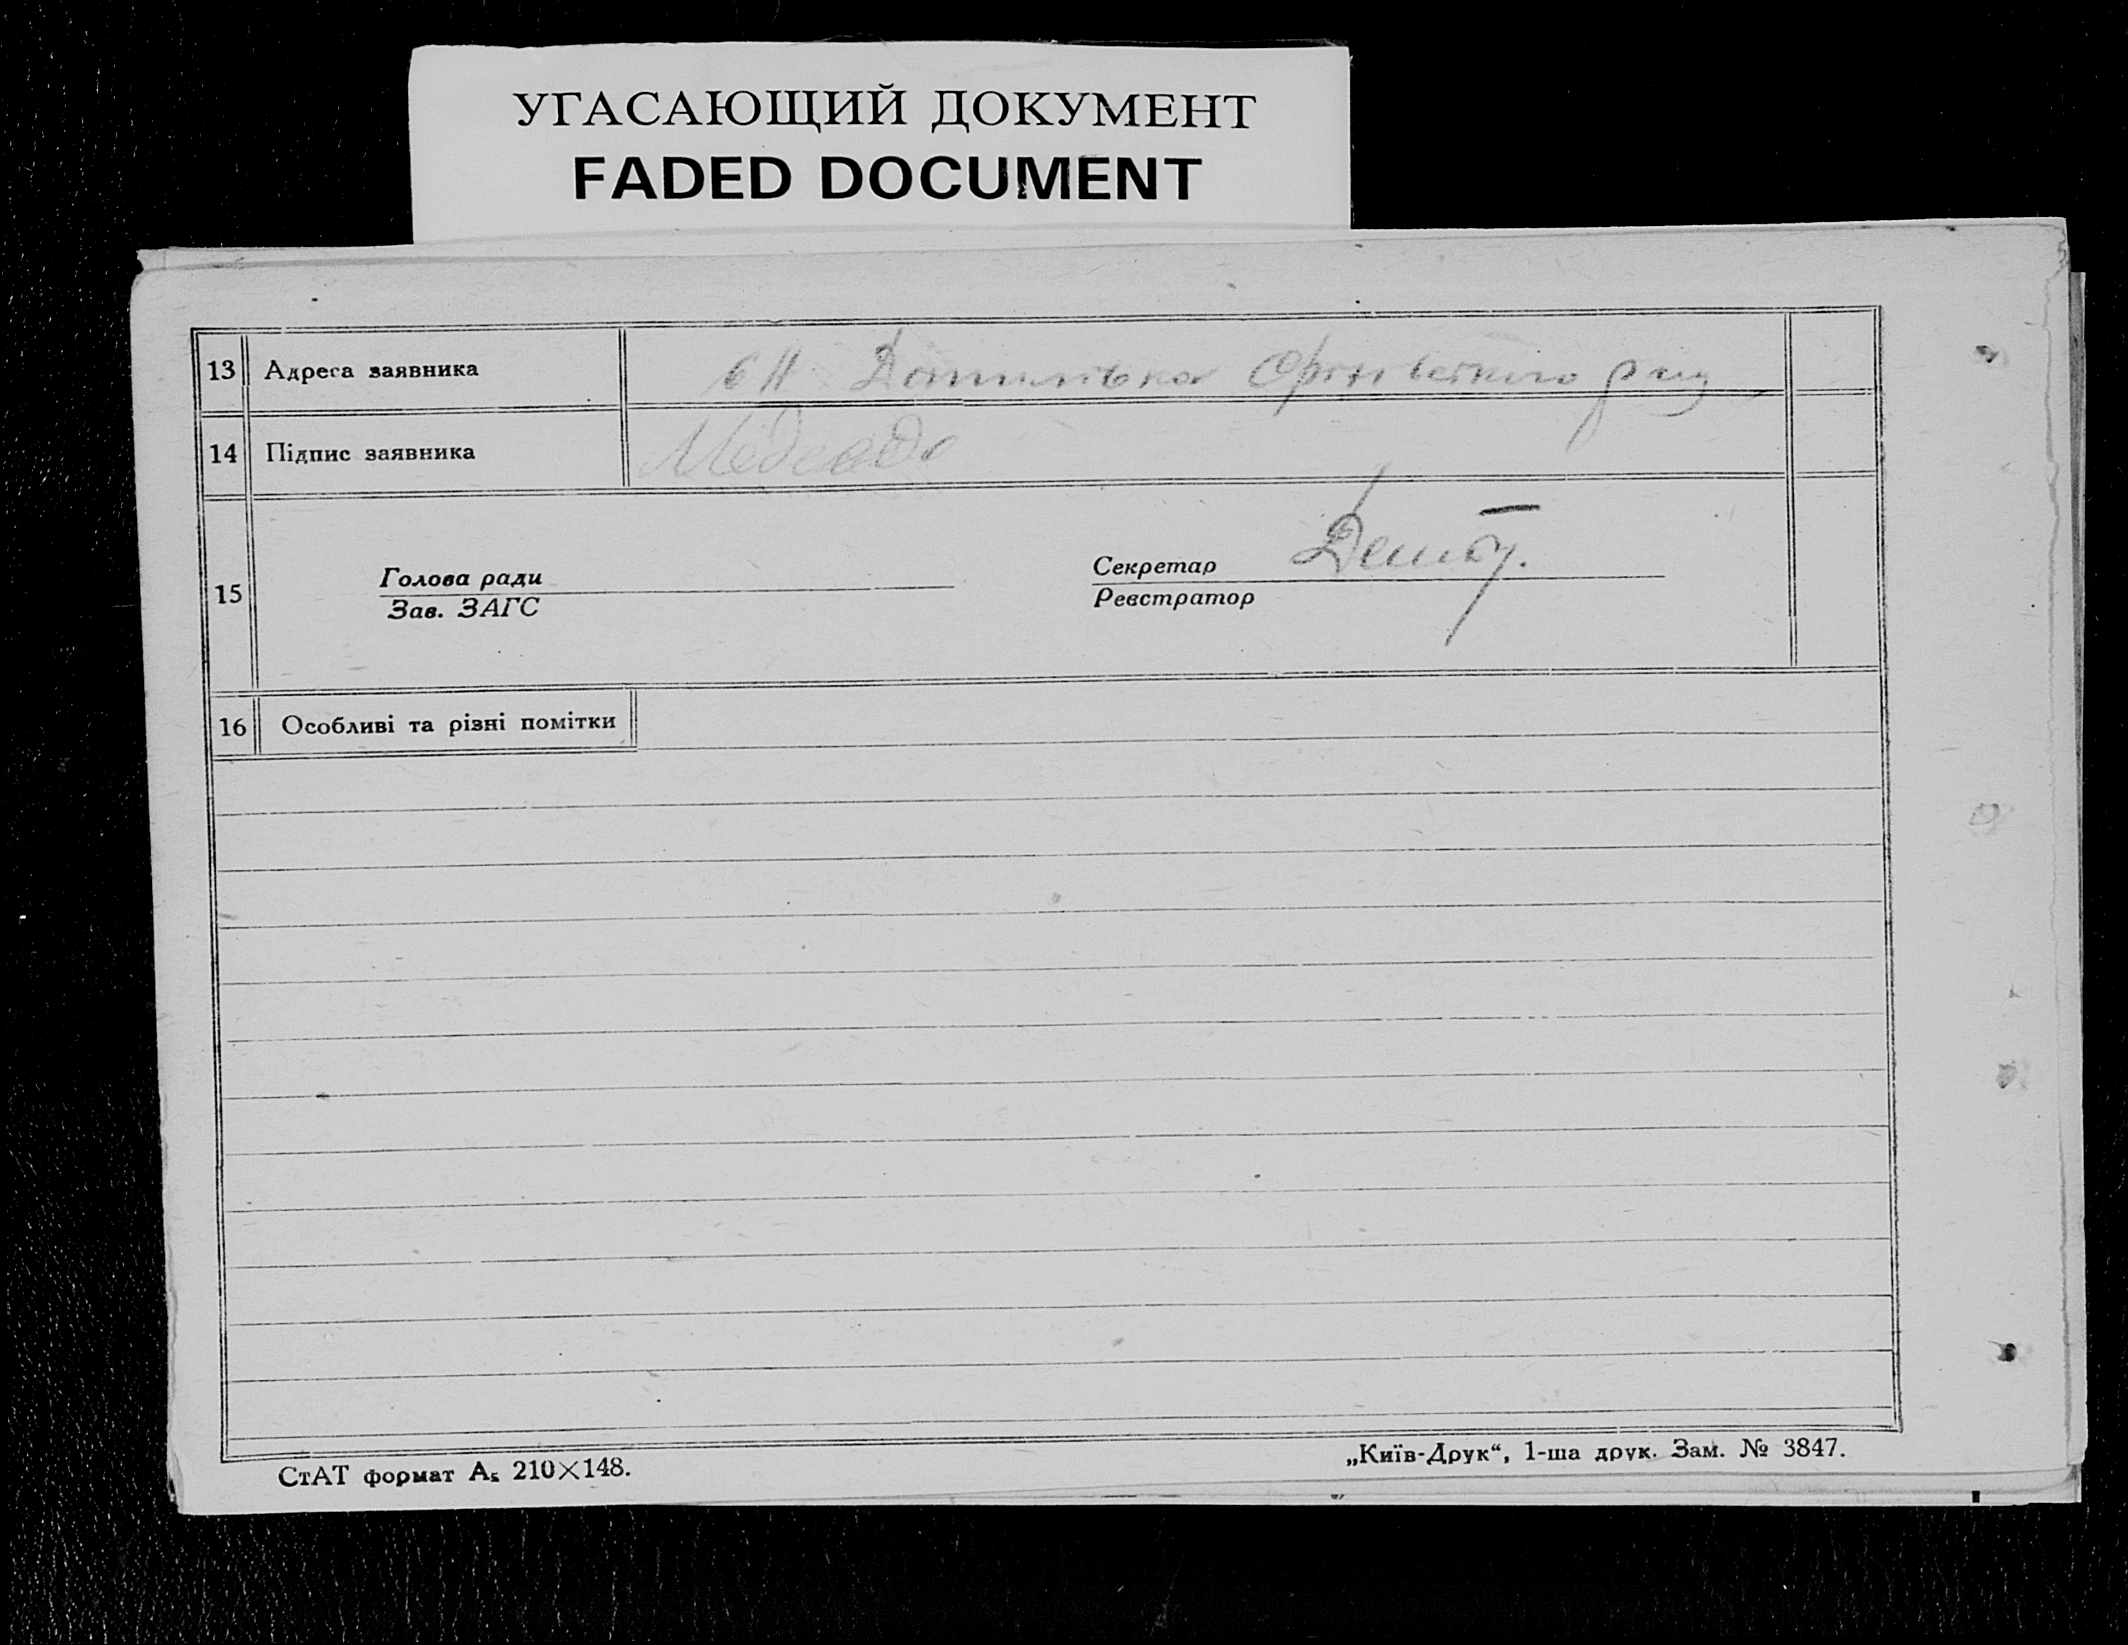 УГАСАЮЩИЙ ДОКУМЕНТ
FADED DOCUMENT
13 Адреса заявника
14 Підпис заявника
15
Голова ради
Зав. ЗАГС
Секретар
Реєстратор
16 Особливі та різні помітки
СтАТ формат А₅ 210×148.
„Київ-Друк“, 1-ша друк. Зам. № 3847.